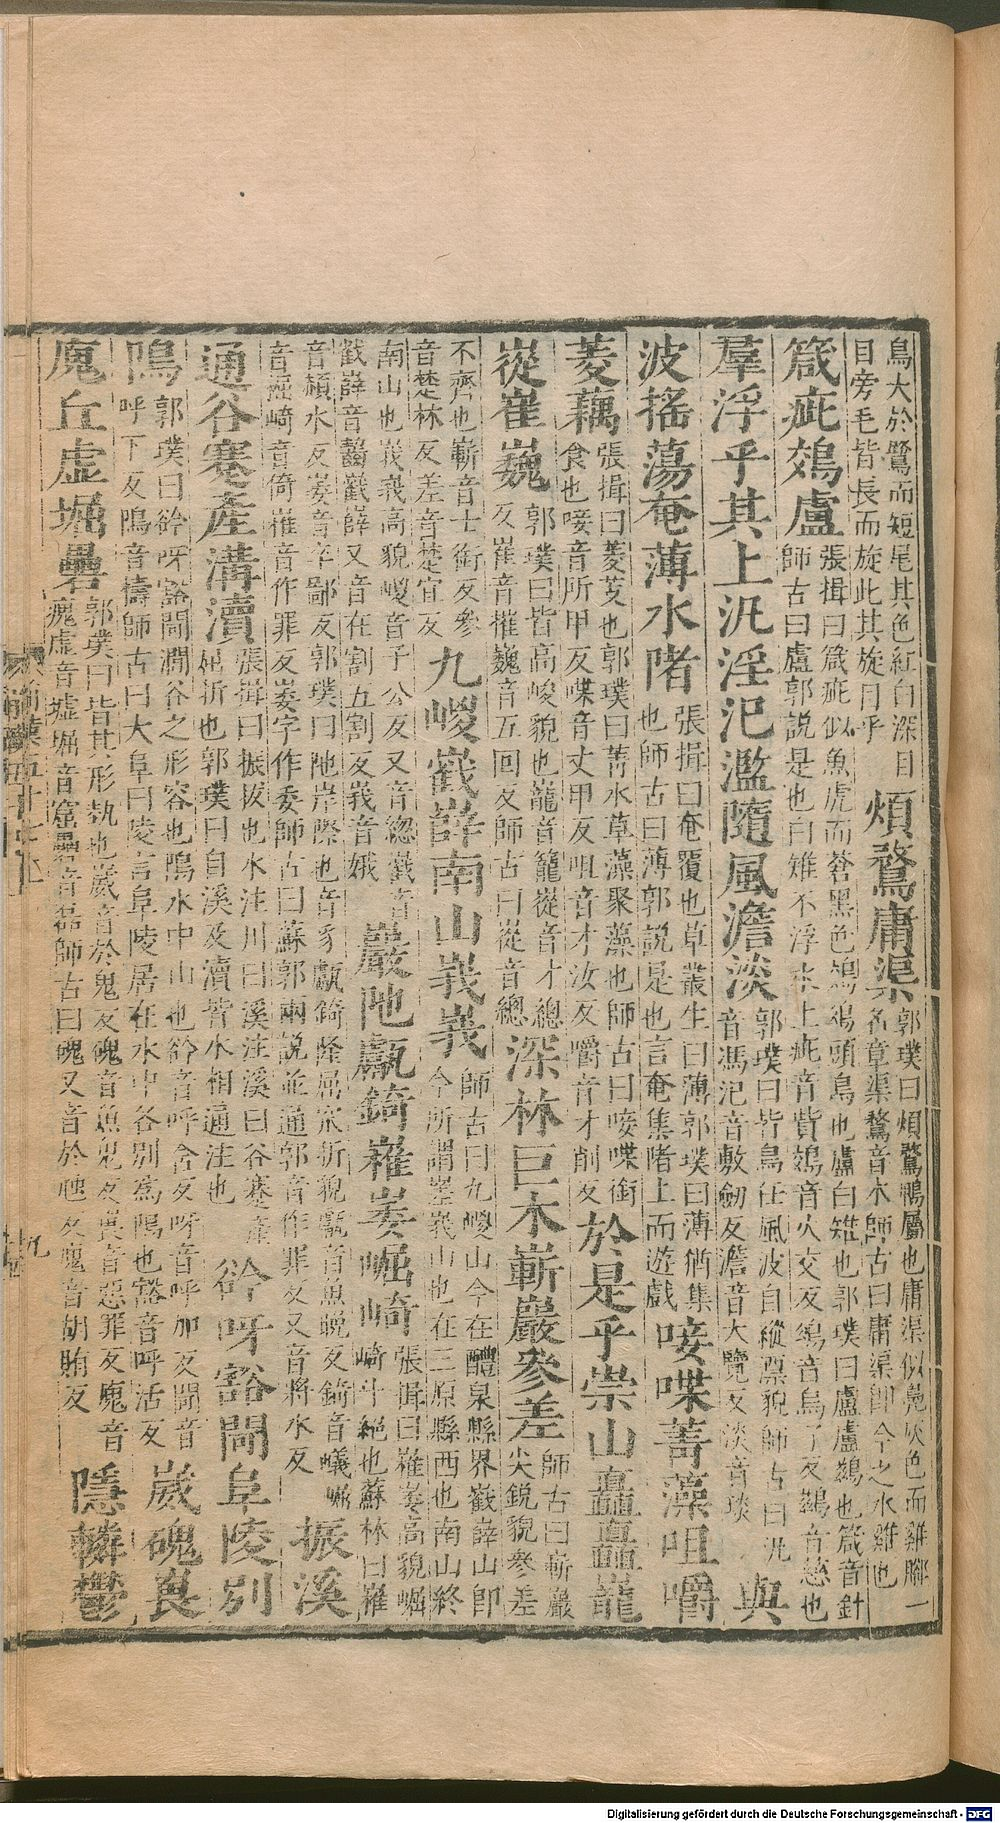 鳥大於鷺而短尾其色紅白深目目旁毛皆長而旋此其旋目乎煩鶩庸渠郭璞曰煩鶩鴨屬也庸渠似鳧灰色而雞脚一名章渠鶩音木師古曰庸渠即今之水雞也
箴疵鵁盧張揖曰箴疵似魚虎而蒼黑色鵁鵁頭鳥也盧白雉也郭璞曰盧盧鷀也箴音針師古曰盧郭說是也白雉不浮水上疵音貲鵁音火交反鷀音慈也
羣浮乎其上汎淫氾濫隨風澹淡郭璞曰皆鳥任風波自縱漂貌師古曰汎音馮氾音敷劒反澹音大覽反淡音琰與
波搖蕩奄薄水陼張揖曰奄覆也草叢生曰薄郭璞曰薄猶集也師古曰薄郭說是也言奄集陼上而遊戲唼喋菁藻咀嚼
菱藕張揖曰菱芰也郭璞曰菁水草藻聚藻也師古曰唼喋銜食也唼音所甲反喋音丈甲反咀音才汝反嚼音才削反於是乎崇山矗矗巃
嵸崔巍郭璞曰皆高峻貌也巃音籠嵸音才總反崔音摧巍音五回反師古曰嵸音總深林巨木嶄巖參差師古曰嶄巖尖銳貌參差
不齊也嶄音士銜反參音楚林反差音楚宜反九嵏巀嶭南山峩峩師古曰九嵏山今在醴泉縣界巀嶭山即今所謂嵳峩山也在三原縣西也南山終
南山也峩峩高貌嵏音子公反又音總巀音截嶭音齧巀嶭又音在割五割反峩音娥巖阤甗錡嶊崣崛崎張揖曰嶊崣高貌崛崎斗絕也蘇林曰嶊
音穨水反崣音卒鄙反郭璞曰阤岸際也音豸甗錡隆屈窊折貌甗音魚晚反錡音蟻崛音掘崎音倚嶊音作罪反崣字作委師古曰蘇郭兩說並通郭音作罪反又音將水反振溪
通谷蹇產溝瀆張揖曰振拔也水注川曰溪注溪曰谷蹇產屈折也郭璞曰自溪及瀆皆水相通注也谽呀豁閜阜陵別
隝郭璞曰谽呀豁閜澗谷之形容也隝水中山也谽音呼含反呀音呼加反閜音呼下反隝音擣師古曰大阜曰陵言阜陵居在水中各別爲隝也豁音呼活反崴磈㟴
廆丘虛堀礨郭璞曰皆其形埶也崴音於鬼反磈音魚鬼反㟴音惡罪反廆音瘣虛音墟堀音窟礨音磊師古曰磈又音於虺反廆音胡賄反隱轔鬱
前漢五十七上
九
Digitalisierung gefördert durch die Deutsche Forschungsgemeinschaft - DFG